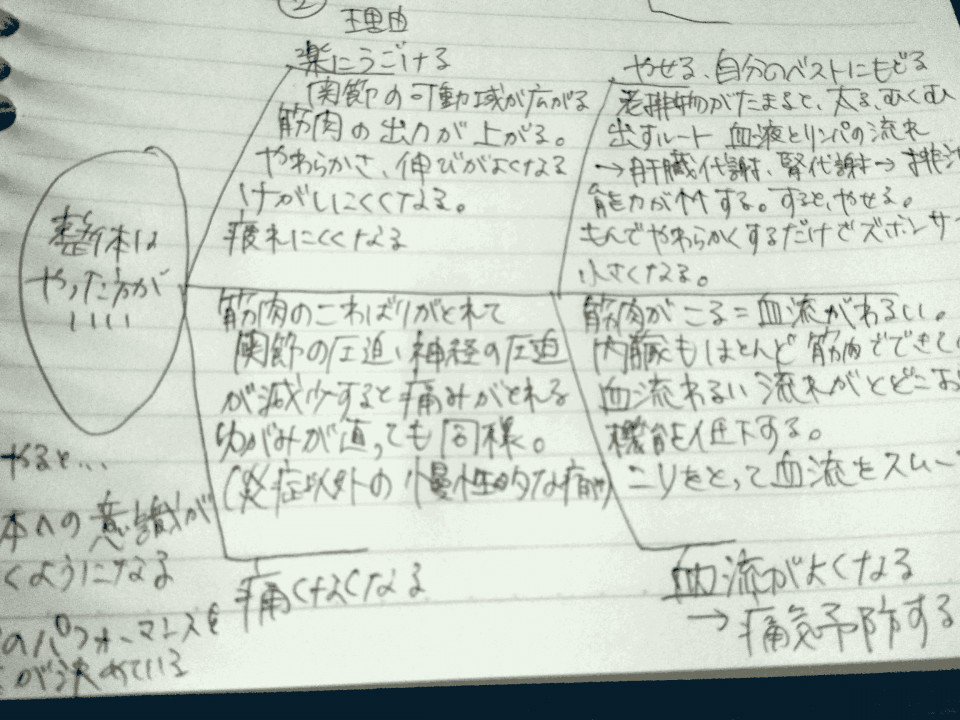 ②
理由
楽にうごける
関節の可動域が広がる
筋肉の出力が上がる。
やわらかさ、伸びがよくなる
けがしにくくなる。
疲れにくくなる
やせる、自分のベストにもどる
老排物がたまると、太る、むくむ
出すルート 血液とリンパの流れ
→肝臓代謝、腎代謝→排泄
能力が↑↑する。すると、やせる。
もんでやわらかくするだけでズボンサ
小さくなる。
整体は
やった方が
いいい
筋肉のこわばりがとれて
関節の圧迫、神経の圧迫
が減少すると痛みがとれる
ゆがみが直っても同様。
(炎症以外の慢性的な痛み
痛くなくなる
筋肉がこる=血流がわるい。
内臓もほとんど筋肉でできて
血流わるい流れがとどこお
機能を低下する。
コリをとって血流をスムー
血流がよくなる
→病気予防する
やると...
体への意識が
くようになる
のパフォーマンスを
が決めている